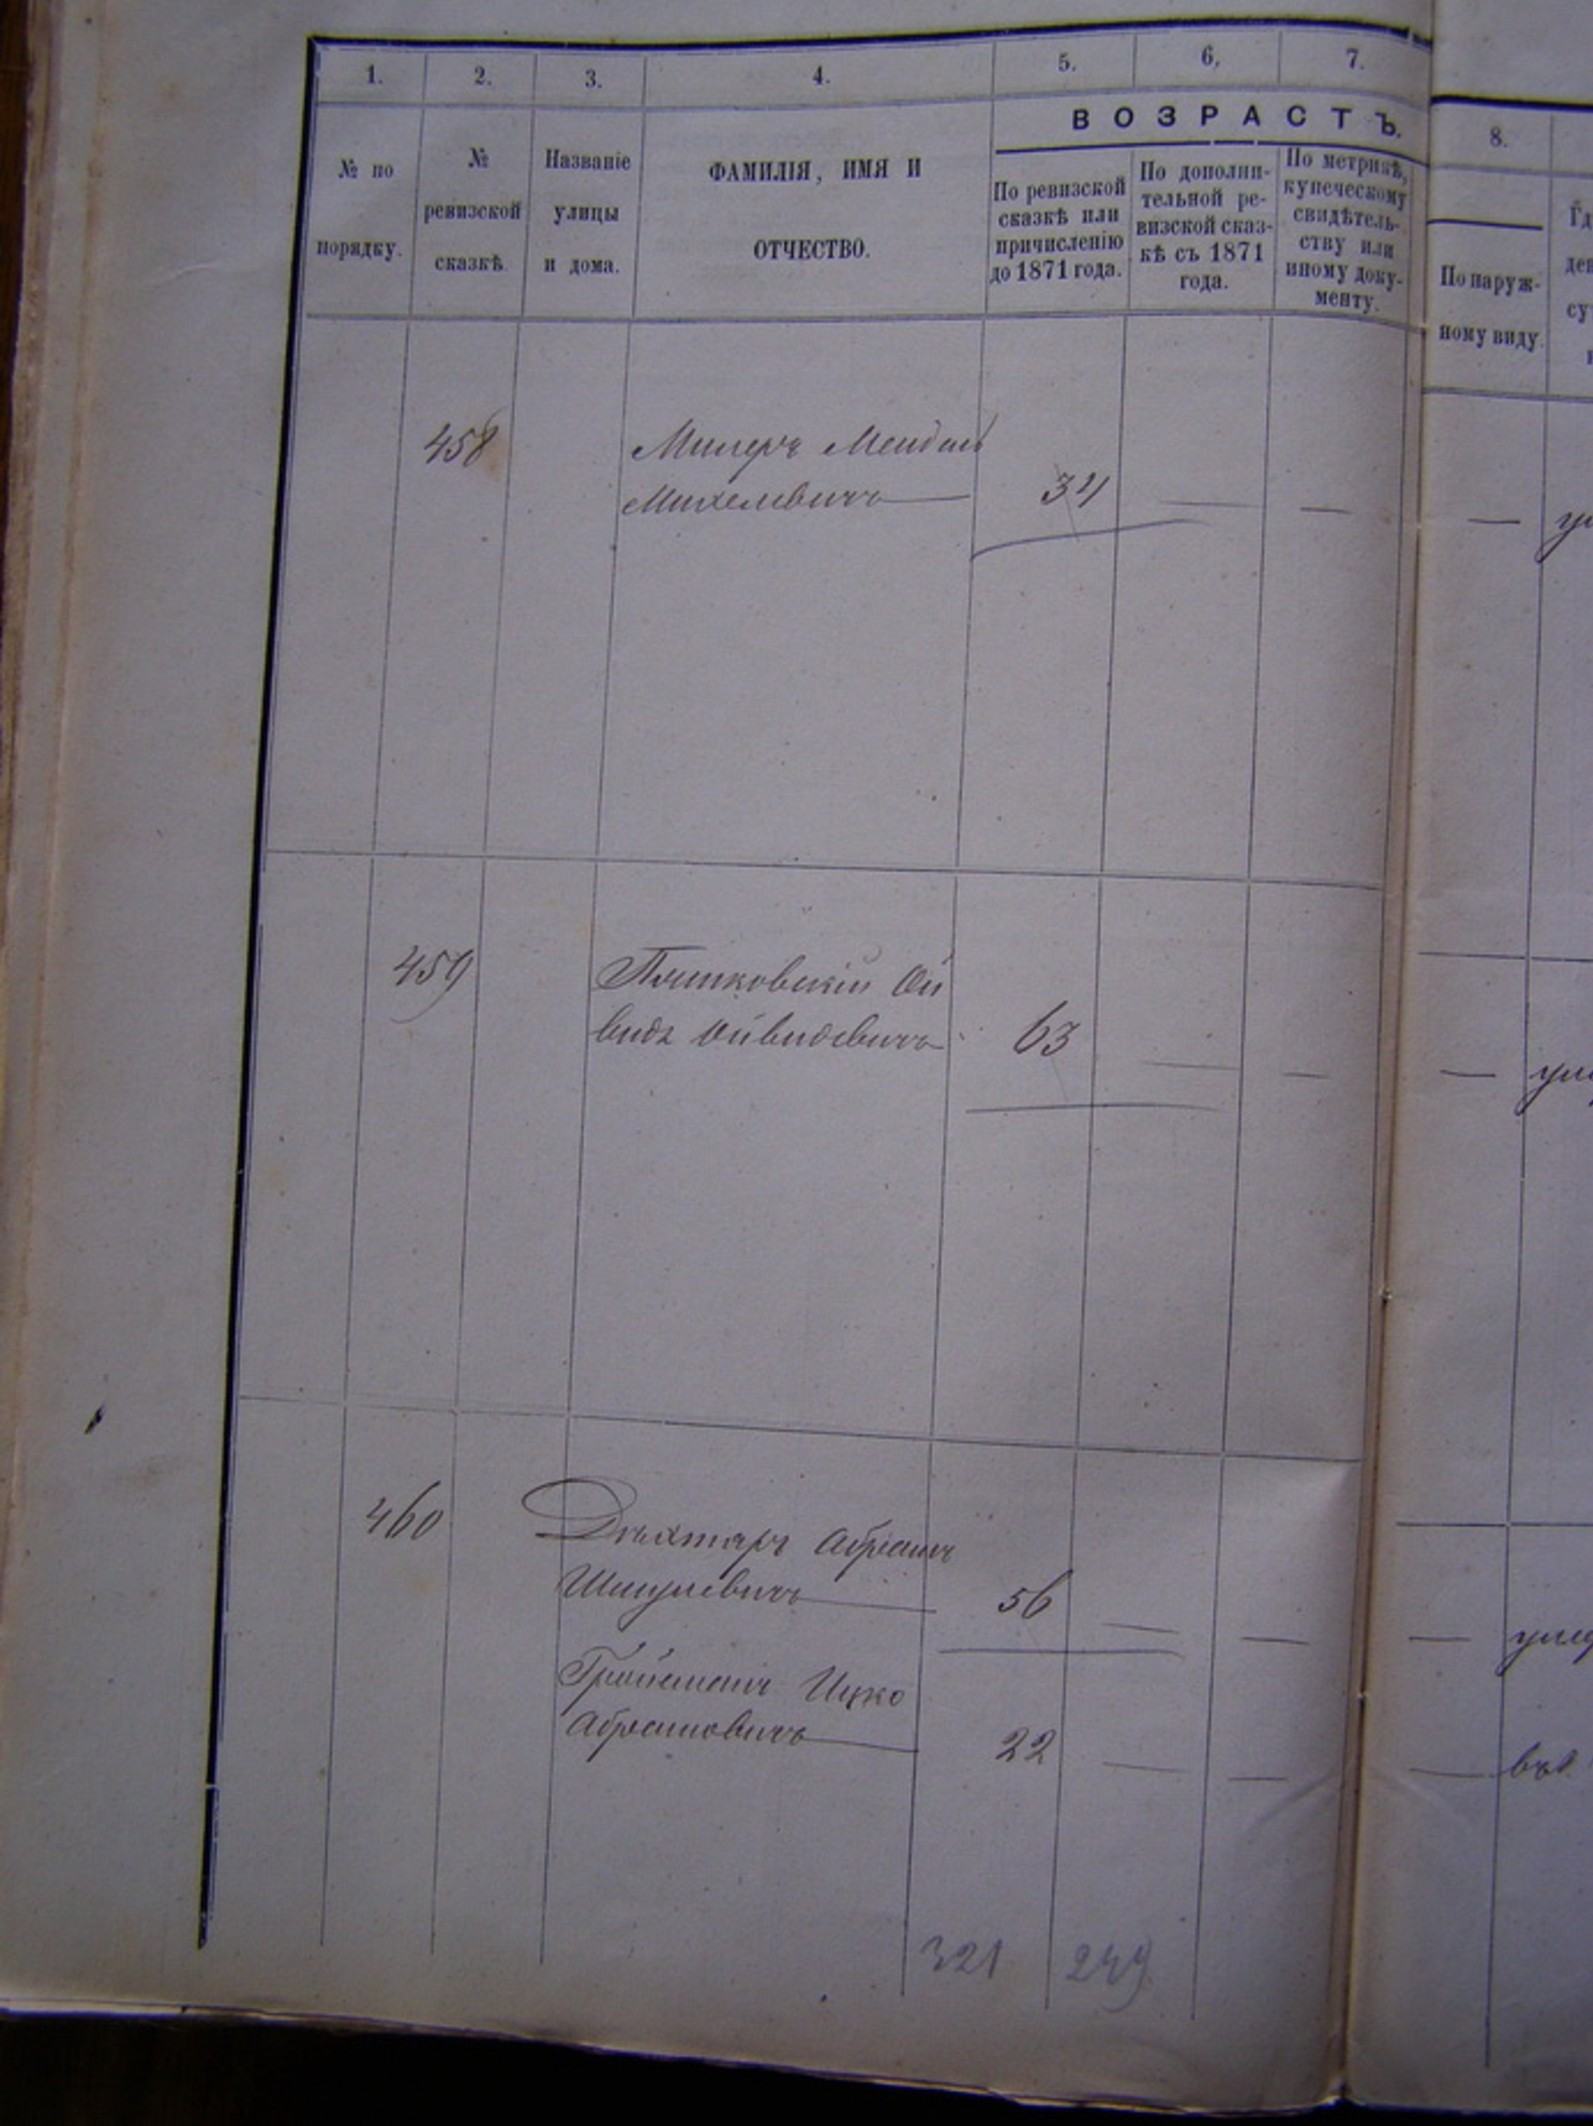 1. 2. 3. 4. 5. 6. 7.
№ по
порядку.
№
ревизской
сказкѣ.
Названіе
улицы
и дома.
ФАМИЛІЯ, ИМЯ И
ОТЧЕСТВО.
ВОЗРАСТЪ.
По ревизской
сказкѣ или
причисленію
до 1871 года.
По дополни-
тельной ре-
визской сказ-
кѣ съ 1871
года.
По метрикѣ,
купеческому
свидѣтель-
ству или
иному доку-
менту.
8.
По наруж-
ному виду.
458
Милеръ Мендель
Михелевичъ
34
459
Пятковскій Ой
видъ Ойвидевичъ
63
460
Абрамъ
Шмулевичъ
56
Гройсманъ Ицко
Абрамовичъ
22
321 249